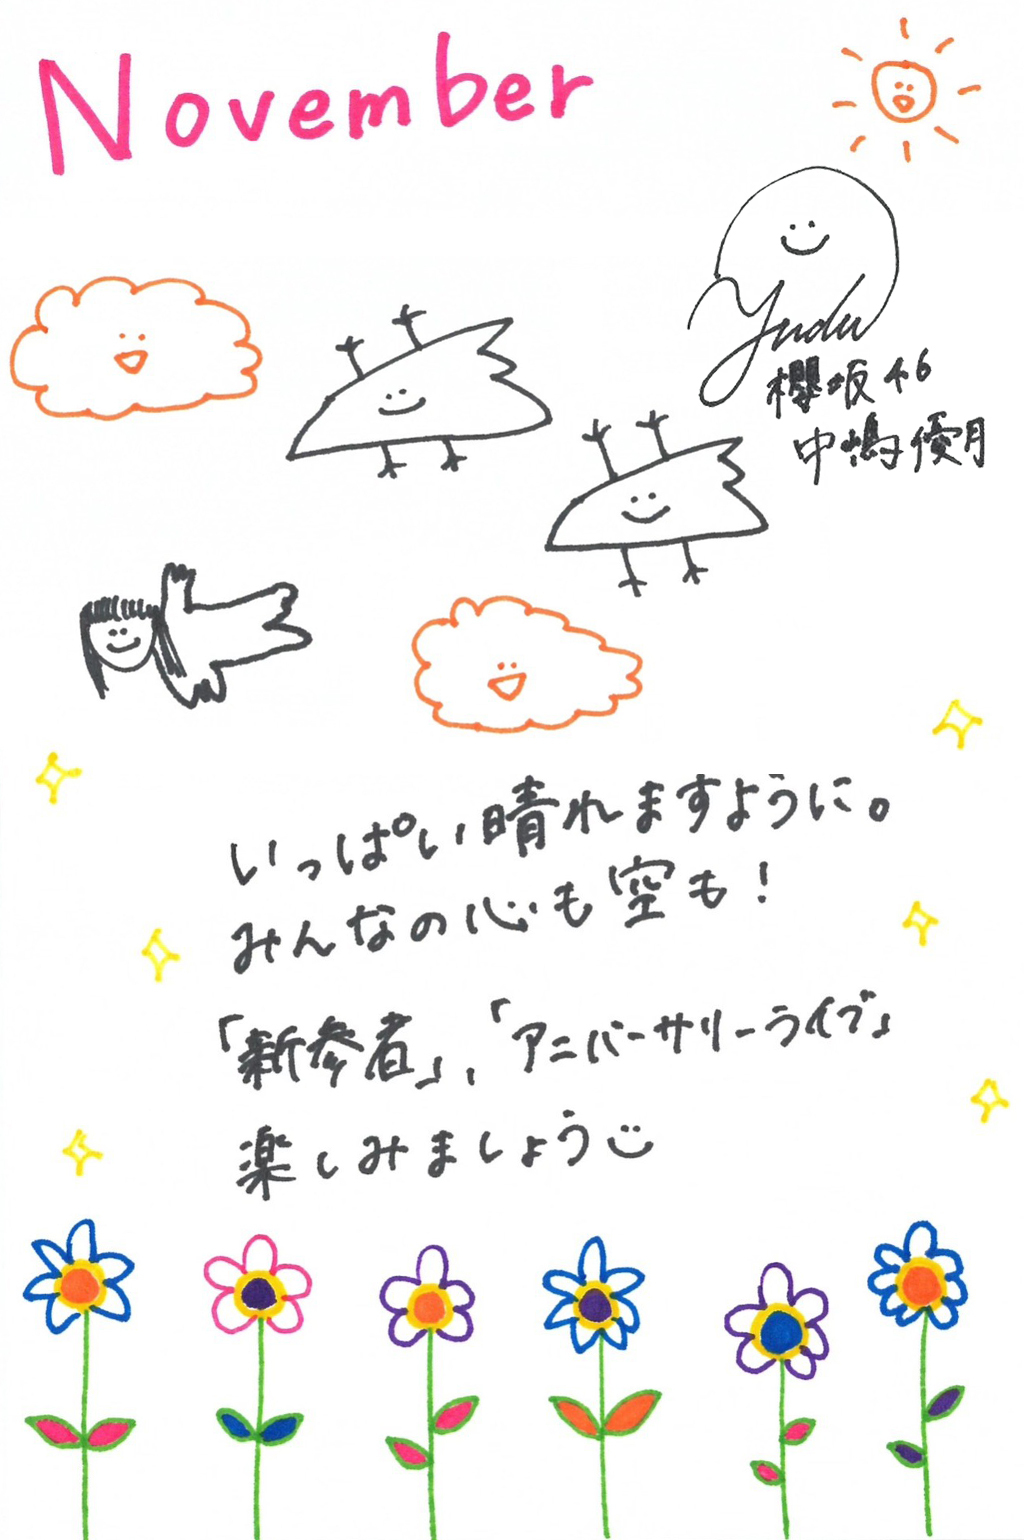 November
Yudu
櫻坂46
中嶋優月
いっぱい晴れますように。
みんなの心も空も!
「新参者」,「アニバーサリーライブ」
楽しみましょう